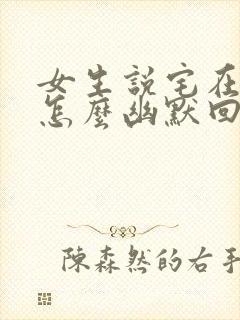 女生説宅在
怎麼幽默回
陳森然的右手